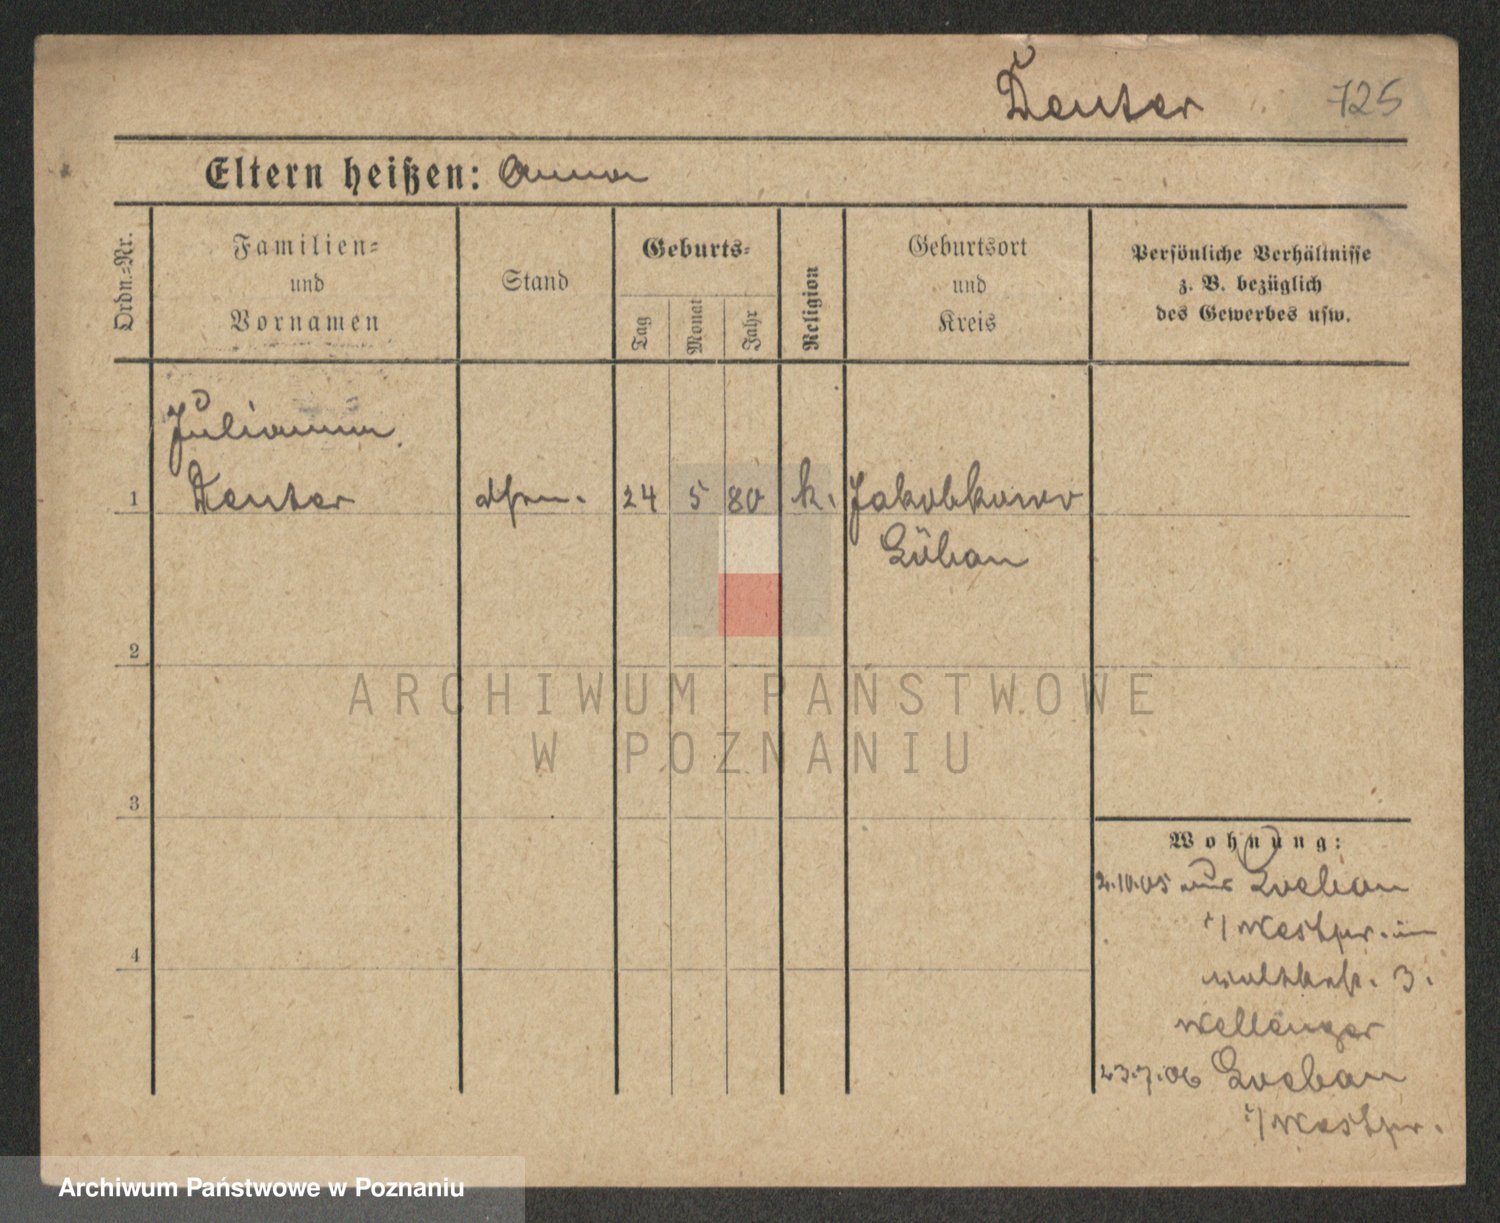 Deuter 725
Eltern heißen: Anna
Ordn.=Nr.
Familien=
und
Vornamen
Stand
Geburts=
Tag
Monat
Jahr
Religion
Geburtsort
und
Kreis
Persönliche Verhältnisse
z. B. bezüglich
des Gewerbes usw.
Julianna
1 Deuter 24 5 80 k. Jakobkowo
Löbau
2
3
4
Wohnung:
2.10.05 aus Loebau
i/Westpr. in
3.
23.7.06 Loebau
i/Westpr.
ARCHIWUM PAŃSTWOWE
W POZNANIU
Archiwum Państwowe w Poznaniu